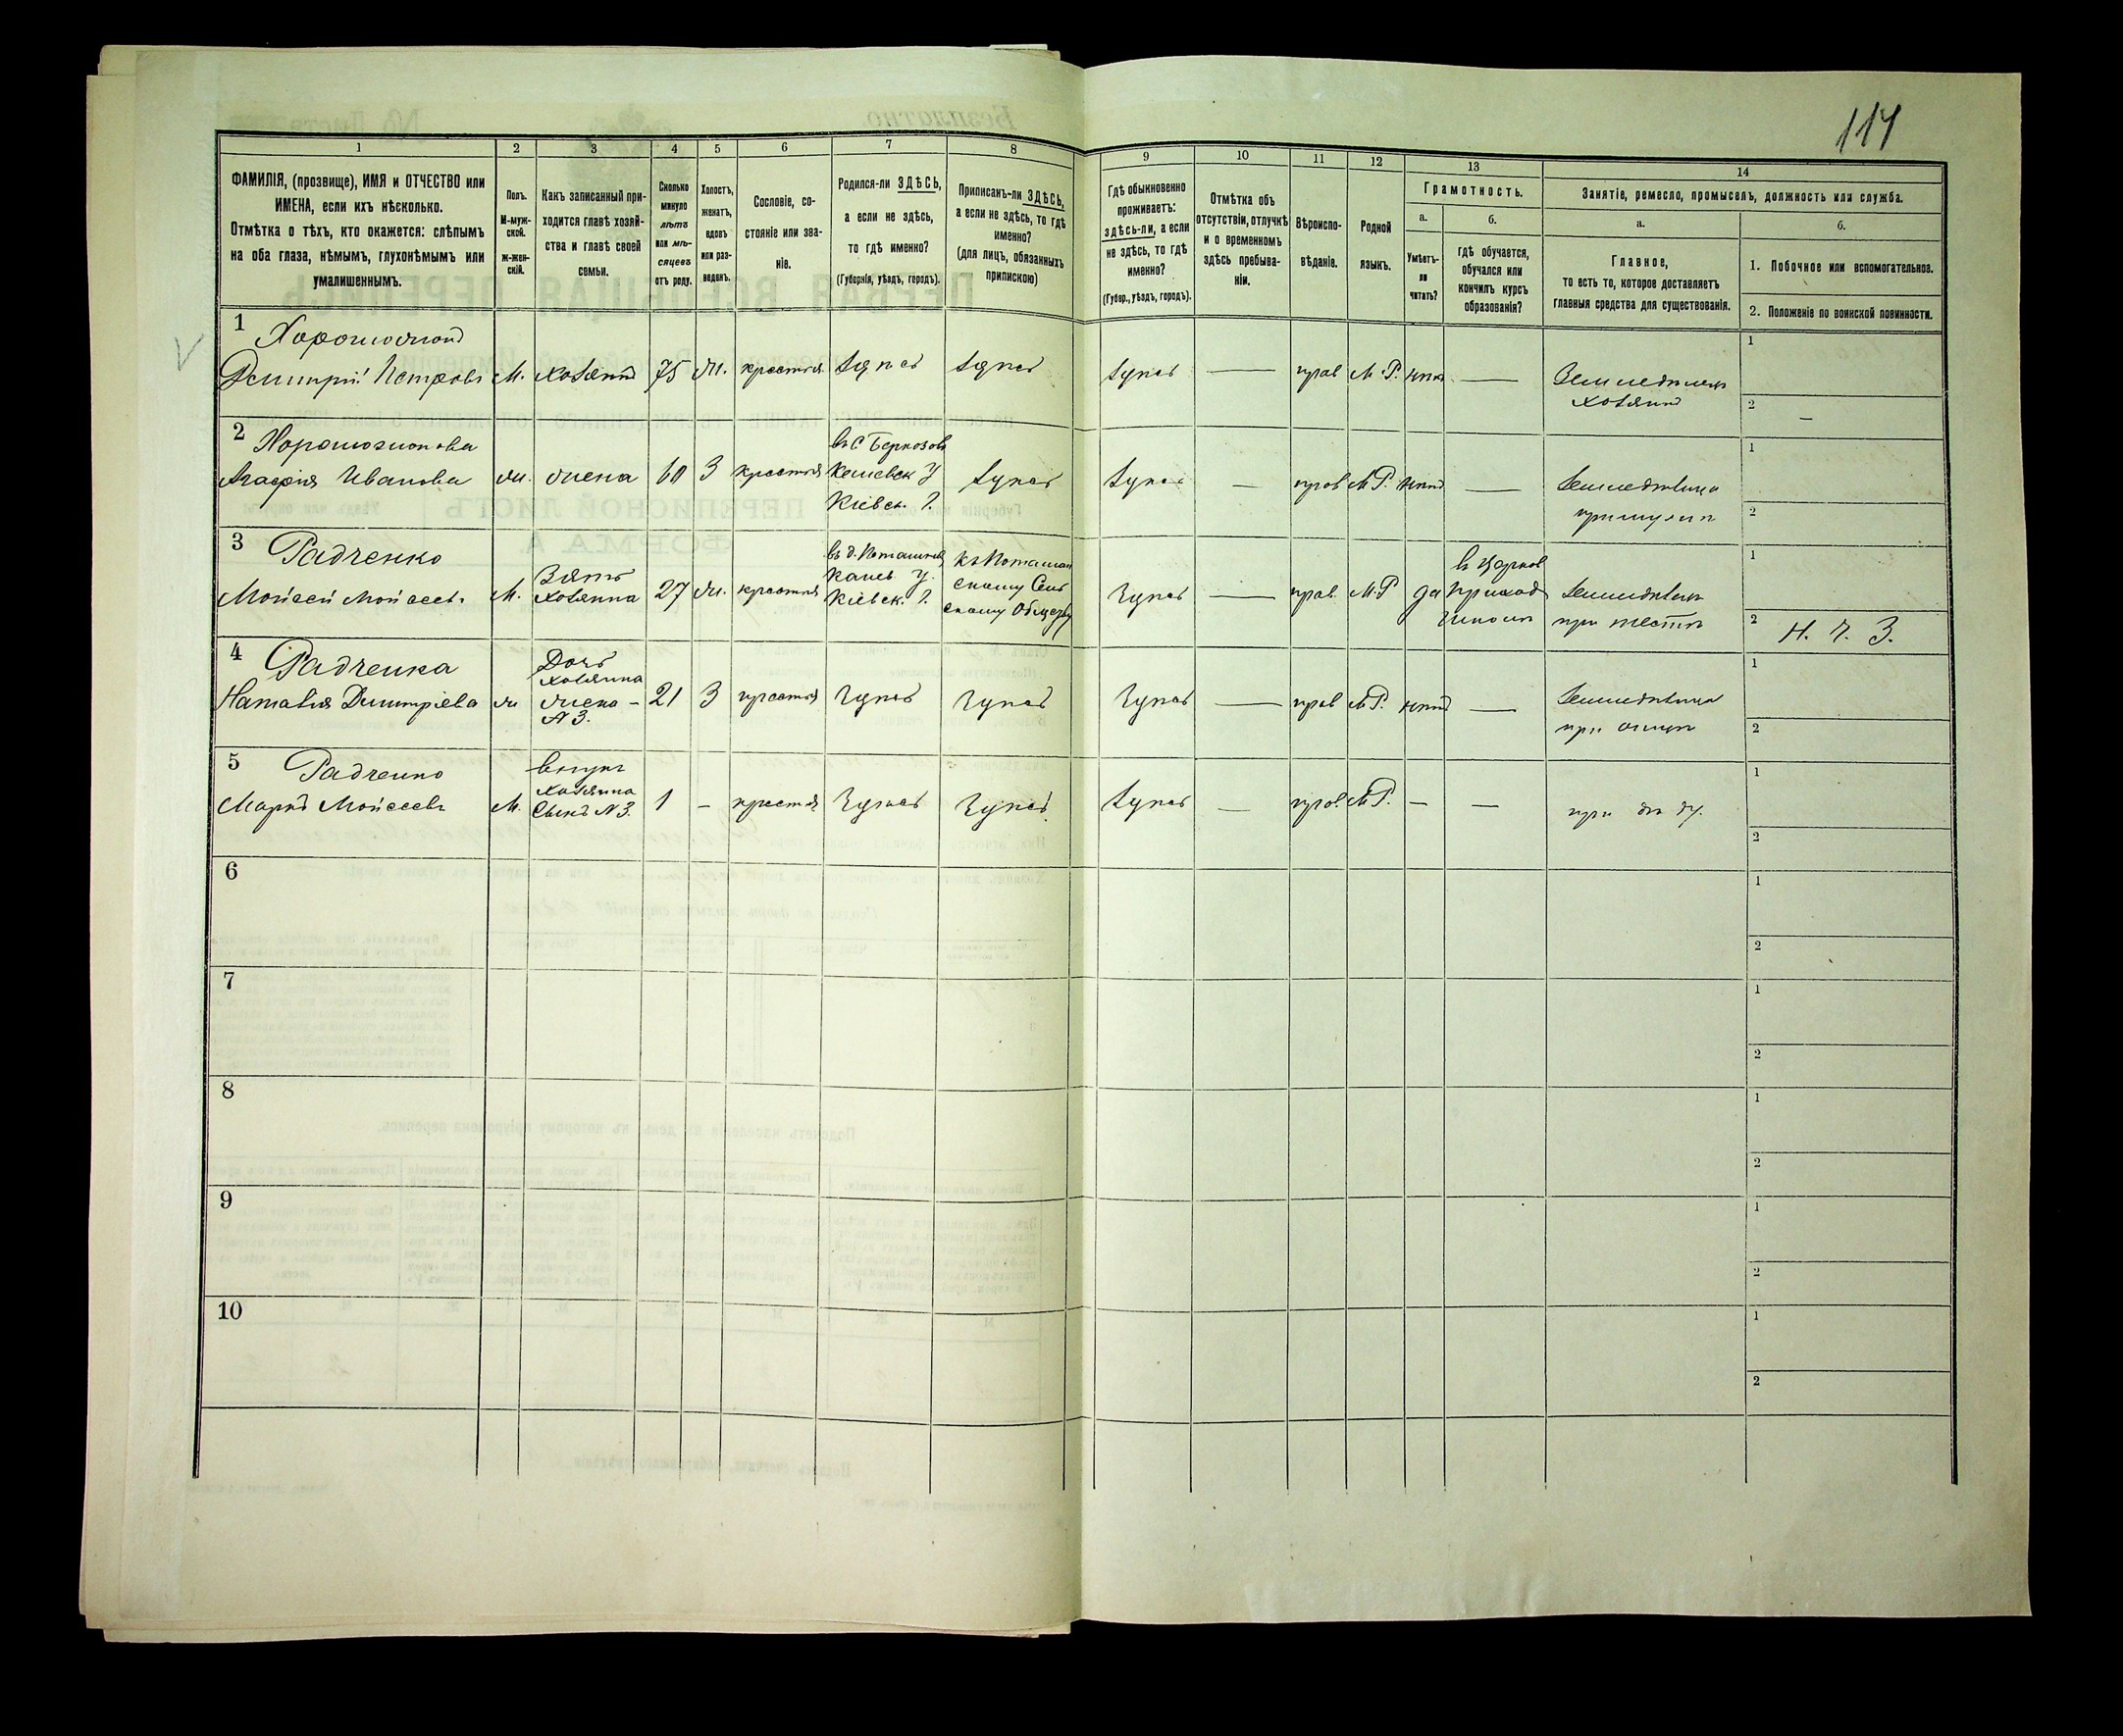 114
1 2 3 4 5 6 7 8 9 10 11 12 13 14
ФАМИЛІЯ, (прозвище), ИМЯ и ОТЧЕСТВО или
ИМЕНА, если ихъ нѣсколько.
Отмѣтка о тѣхъ, кто окажется: слѣпымъ
на оба глаза, нѣмымъ, глухонѣмымъ или
умалишеннымъ.
Полъ.
М-муж-
ской.
ж-жен-
скій.
Какъ записанный при-
ходится главѣ хозяй-
ства и главѣ своей
семьи.
Сколько
минуло
лѣтъ
или мѣ-
сяцевъ
отъ роду.
Холостъ,
женатъ,
вдовъ
или раз-
веденъ.
Сословіе, со-
стояніе или зва-
ніе.
Родился-ли ЗДѢСЬ,
а если не здѣсь,
то гдѣ именно?
(Губернія, уѣздъ, городъ).
Приписанъ-ли ЗДѢСЬ,
а если не здѣсь, то гдѣ
именно?
(для лицъ, обязанныхъ
припискою)
Гдѣ обыкновенно
проживаетъ:
здѣсь-ли, а если
не здѣсь, то гдѣ
именно?
(Губер., уѣздъ, городъ).
Отмѣтка объ
отсутствіи, отлучкѣ
и о временномъ
здѣсь пребыва-
ніи.
Вѣроиспо-
вѣданіе.
Родной
языкъ.
Грамотность.
а.
Умѣетъ-
ли
читать?
б.
Гдѣ обучается,
обучался или
кончилъ курсъ
образованія?
Занятіе, ремесло, промыселъ, должность или служба.
а.
Главное,
то есть то, которое доставляетъ
главныя средства для существованія.
б.
1. Побочное или вспомогательное.
2. Положеніе по воинской повинности.
1
Дмитрій Петровъ М. хозяинъ 75 ж. крестья здѣсь здѣсь здѣсь — прав М.Р. нѣтъ — Земледѣлецъ
хозяинъ
1
2 —
2
Агафія Иванова ж. жена 60 З крестья
въ С Беркозов
Каневск У
Кіевск. Г.
здѣсь здѣсь — прав М.Р. нѣтъ — земледѣлица
при мужѣ
1
2
3 Радченко
Мойсей Мойсеевъ М.
Зять
хозяина
27 ж. крестья
Канев У.
Кіевск. Г.
скому Сель
скому Общеву
здѣсь — прав. М.Р да
въ Церков
Приход
школѣ
земледѣлец
при тестѣ
1
2 Н. Ч. З.
4 Радченка
Наталія Димитріева ж
Дочь
хозяина
жена -
N 3.
21 З крестья здѣсь здѣсь здѣсь — прав М.Р. нѣтъ — земледѣлица
при отцѣ
1
2
5 Радченко
Маркъ Мойсеевъ М.
внукъ
хозяина
Сынъ N 3.
1 — крестья здѣсь здѣсь здѣсь — прав. М.Р. — — при дѣду.
1
2
6
1
2
7
1
2
8
1
2
9
1
2
10
1
2